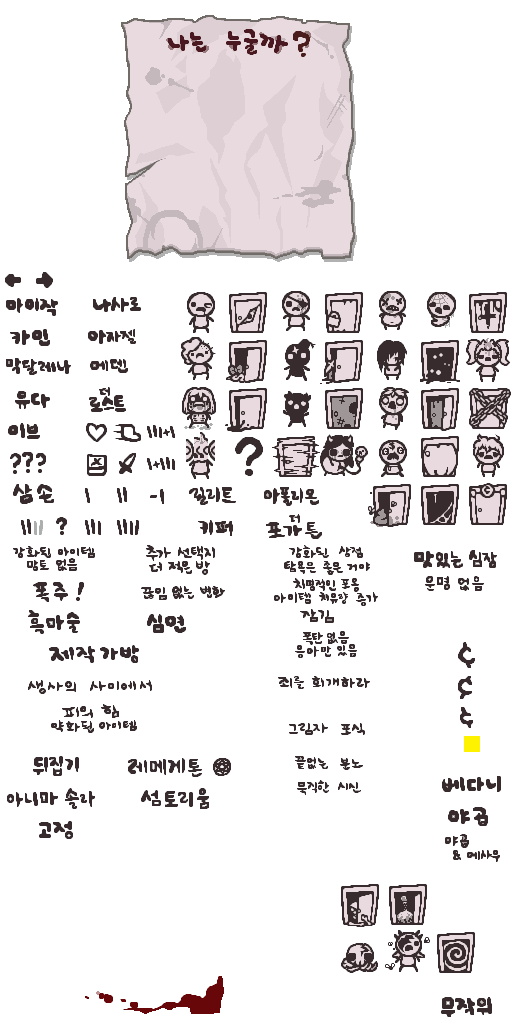 나는 누굴까?
아이작 나사로
카인 아자젤
막달레나 에덴
유다 더 로스트
이브
???
삼손 릴리트 아폴리온
? 키퍼 더 포가튼
강화된 아이템
맘토 없음
추가 선택지
더 적은 방
강화된 상점
탐욕은 좋은 거야
맛있는 심장
운명 없음
폭주!
끊임 없는 변화
치명적인 포옹
아이템 치유량 증가
흑마술 심연
잠김
폭탄 없음
응아만 있음
제작 가방
생사의 사이에서
죄를 회개하라
피의 힘
약화된 아이템
그림자 포식
뒤집기 레메게톤
끝없는 분노
묵직한 시신
베다니
아니마 솔라 섬토리움
야곱
고정
야곱
& 에사우
무작위